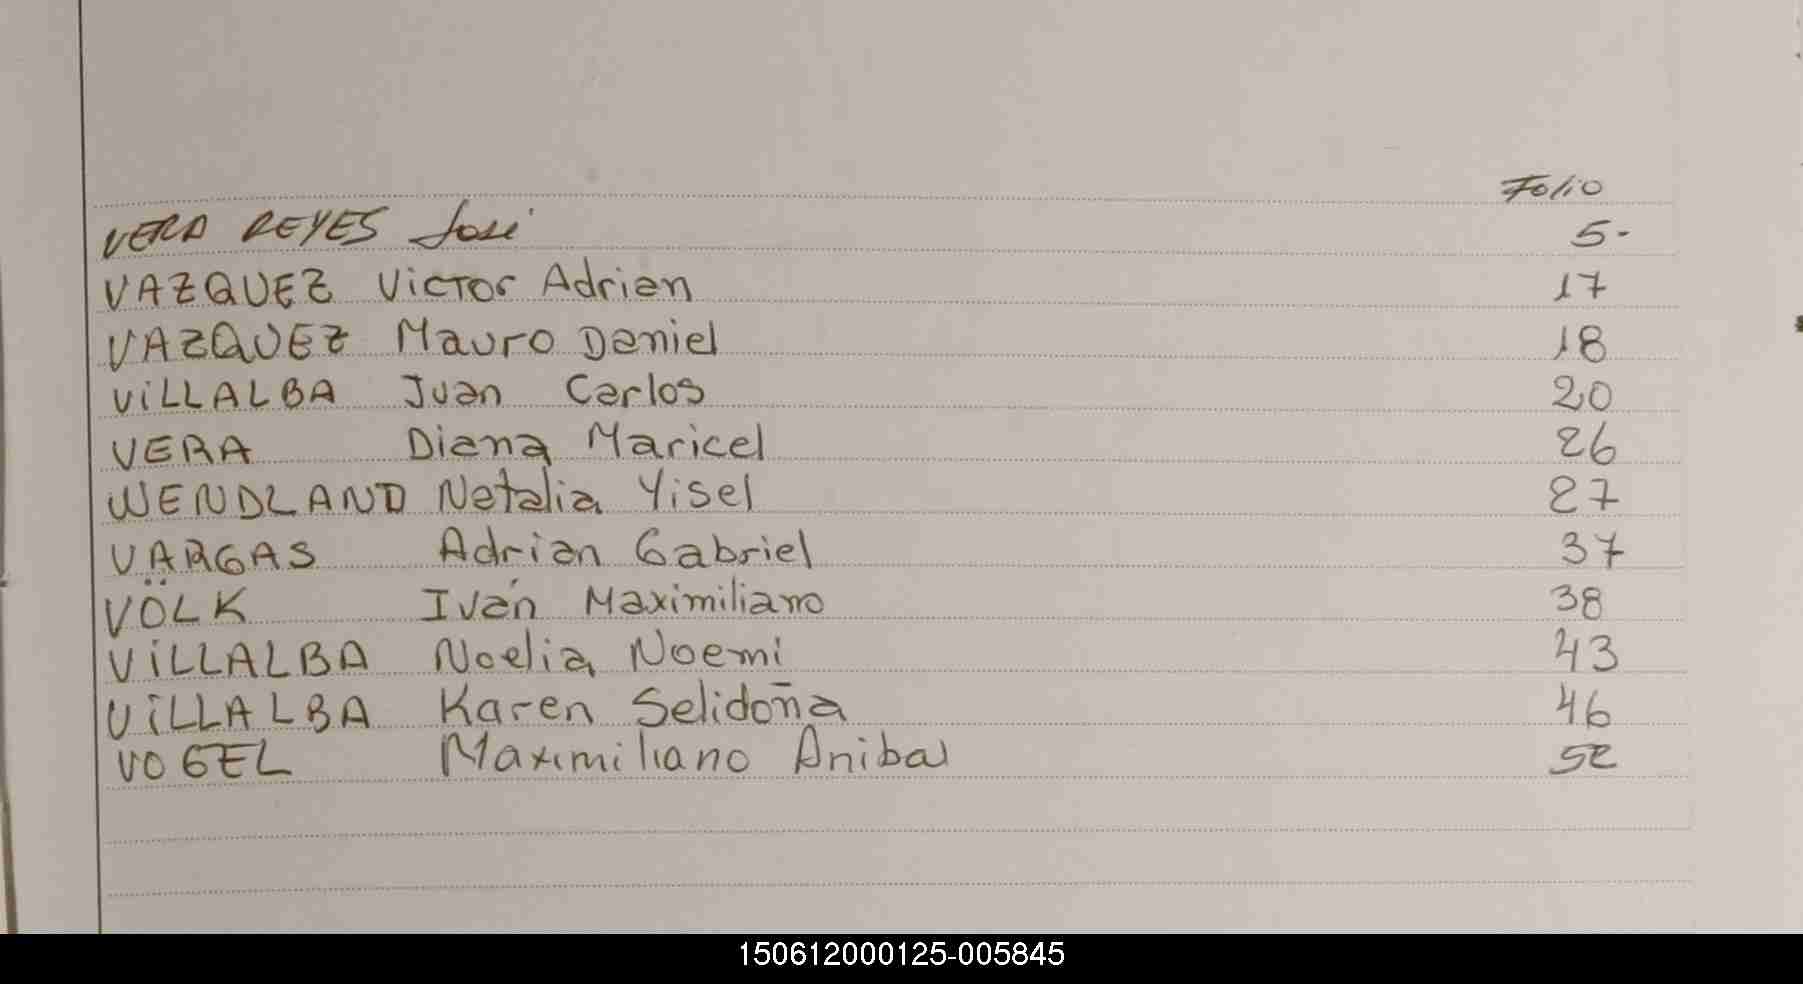 Folio
VERA REYES José 5-
VAZQUEZ Victor Adrian 17
VAZQUEZ Mauro Daniel 18
ViLLALBA Juan Carlos 20
VERA Diana Maricel 26
WENDLAND Natalia Yisel 27
VARGAS Adrian Gabriel 37
VÖLK Iván Maximiliano 38
ViLLALBA Noelia Noemi 43
ViLLALBA Karen Selidoña 46
VOGEL Maximiliano Anibal 52
150612000125-005845